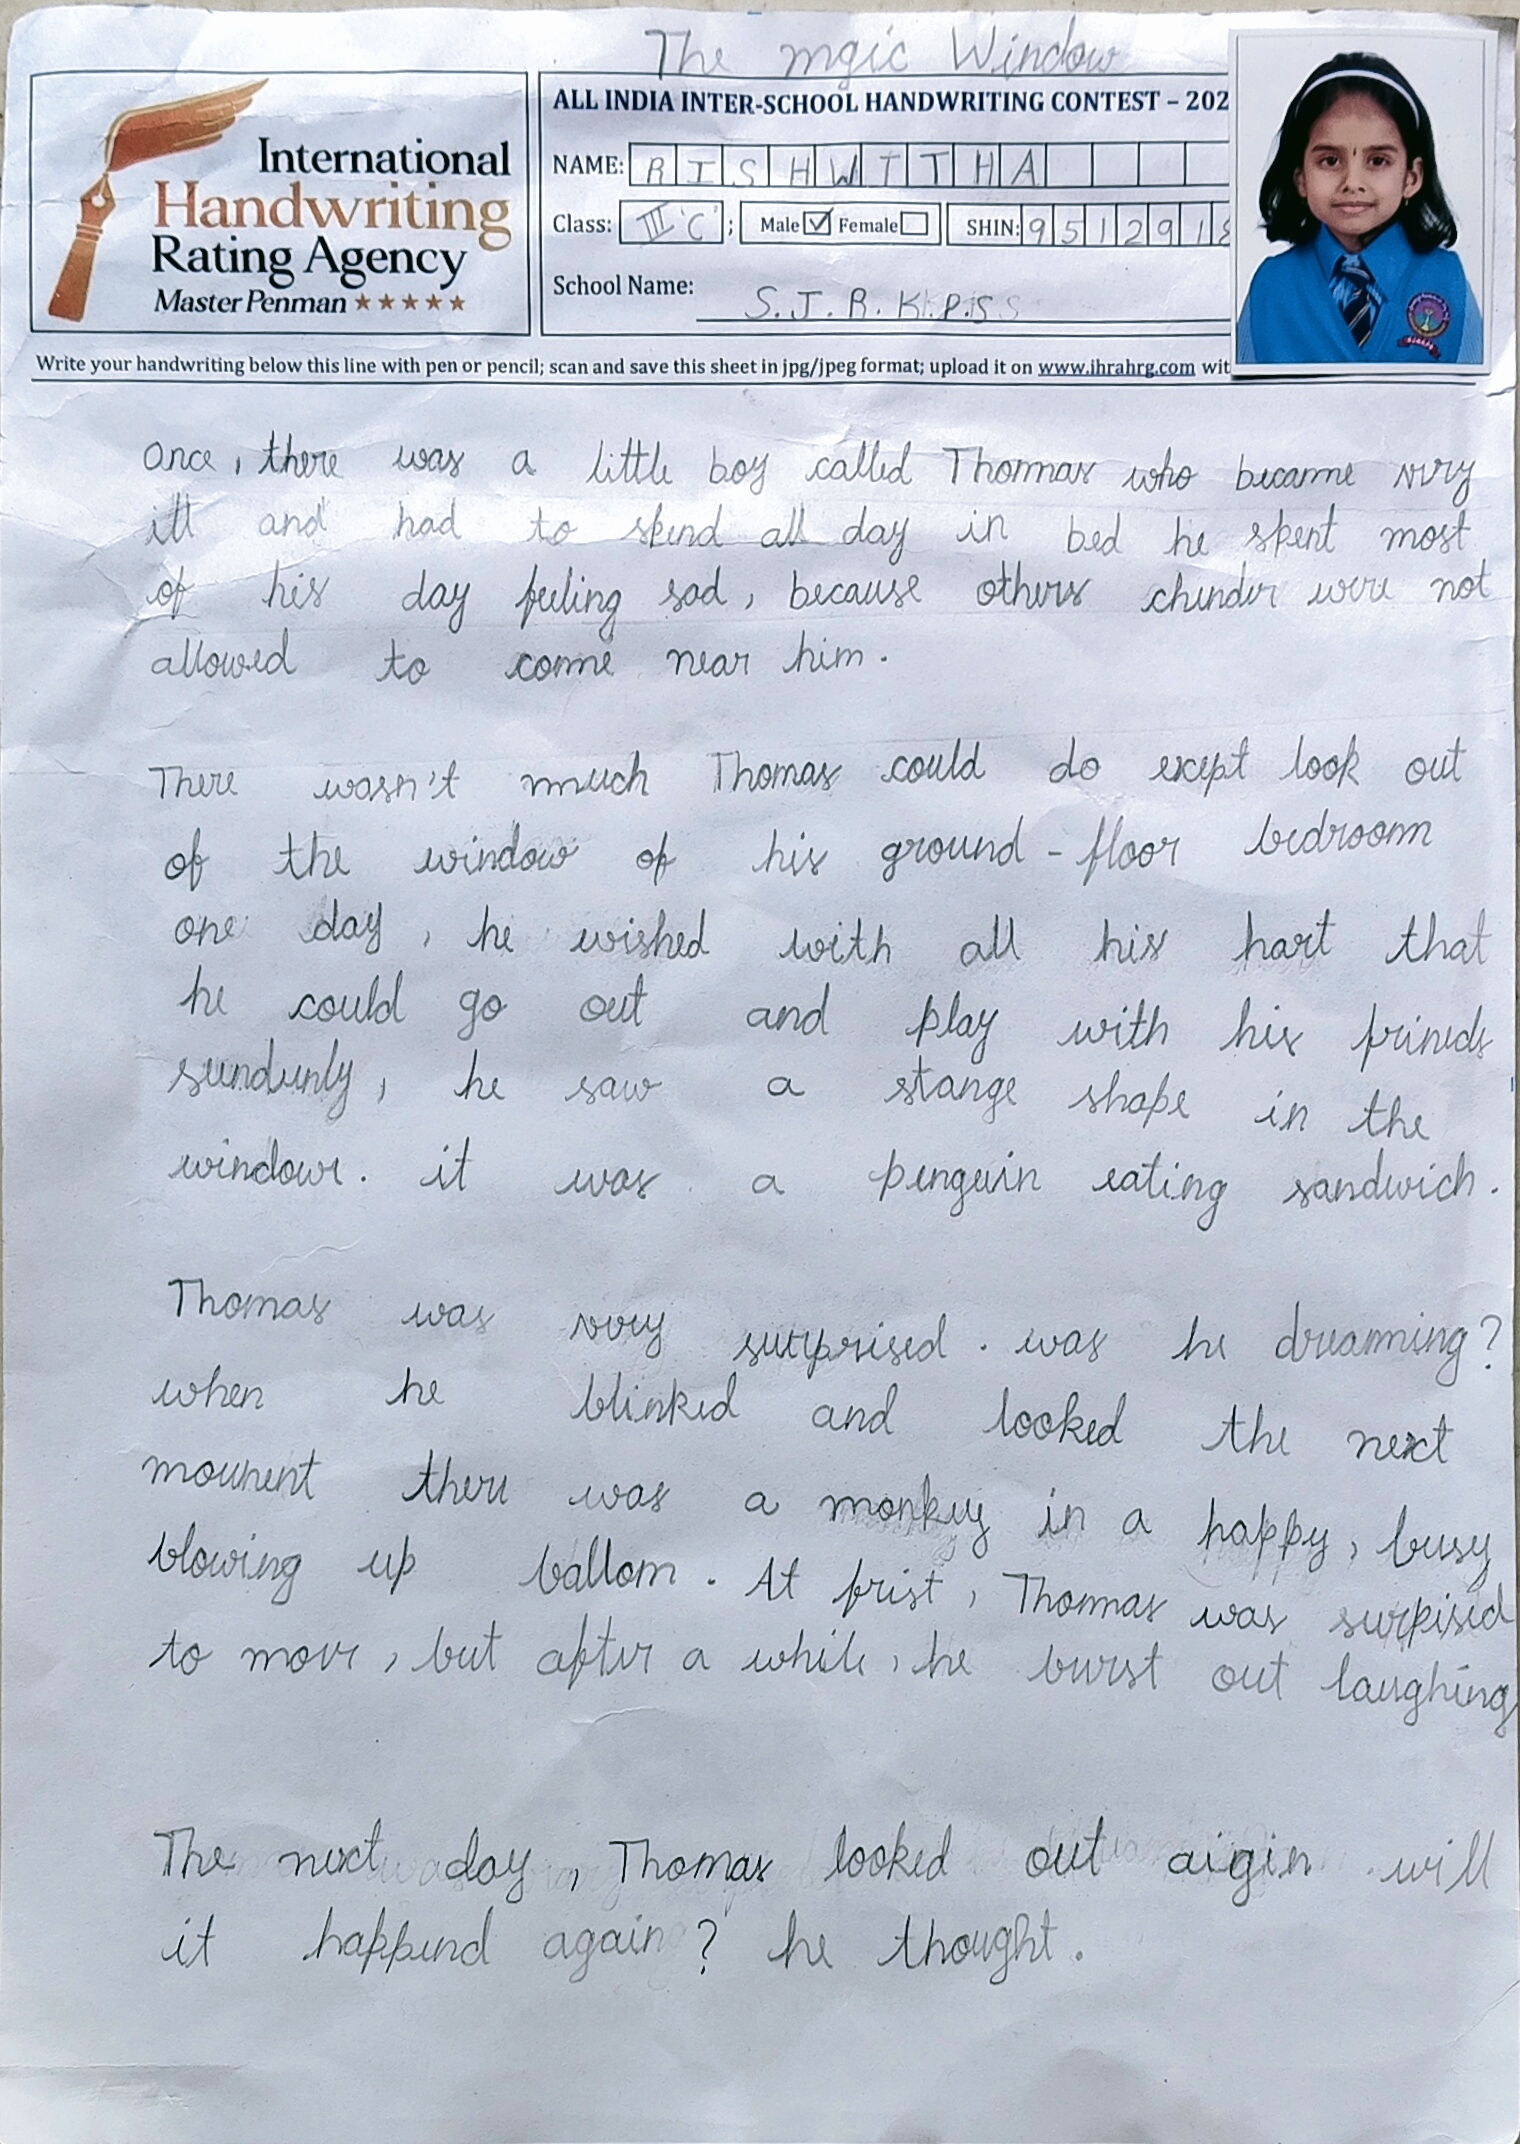 The mgic Window
International
Handwriting
Rating Agency
Master Penman ★★★★★
ALL INDIA INTER-SCHOOL HANDWRITING CONTEST – 202
NAME: RISHWITHA
Class: III 'C' ; Male ☑ Female ☐ SHIN: 951291
School Name: S.J.R.K.P.S S
Write your handwriting below this line with pen or pencil; scan and save this sheet in jpg/jpeg format; upload it on www.ihrahrg.com wit
Once, there was a little boy called Thommas who became very
ill and had to spend all day in bed he spent most
of his day feeling sad, because others were not
allowed to come near him.
There wasn't much Thomas could do exept look out
of the window of his ground - floor bedroom
one day, he wished with all his hart that
he could go out and play with his frineds
sundenly, he saw a stange shape in the
window. it was a penguin eating sandwich.
Thomas was very surprised. was he dreamming?
when he blinked and looked the next
there was a monkey in a happy, busy
blowing up ballom. At frist, Thommas was surpised
to move, but after a while, he burst out laughing
The next day, Thomas looked out aigin will
it happend again? he thought.